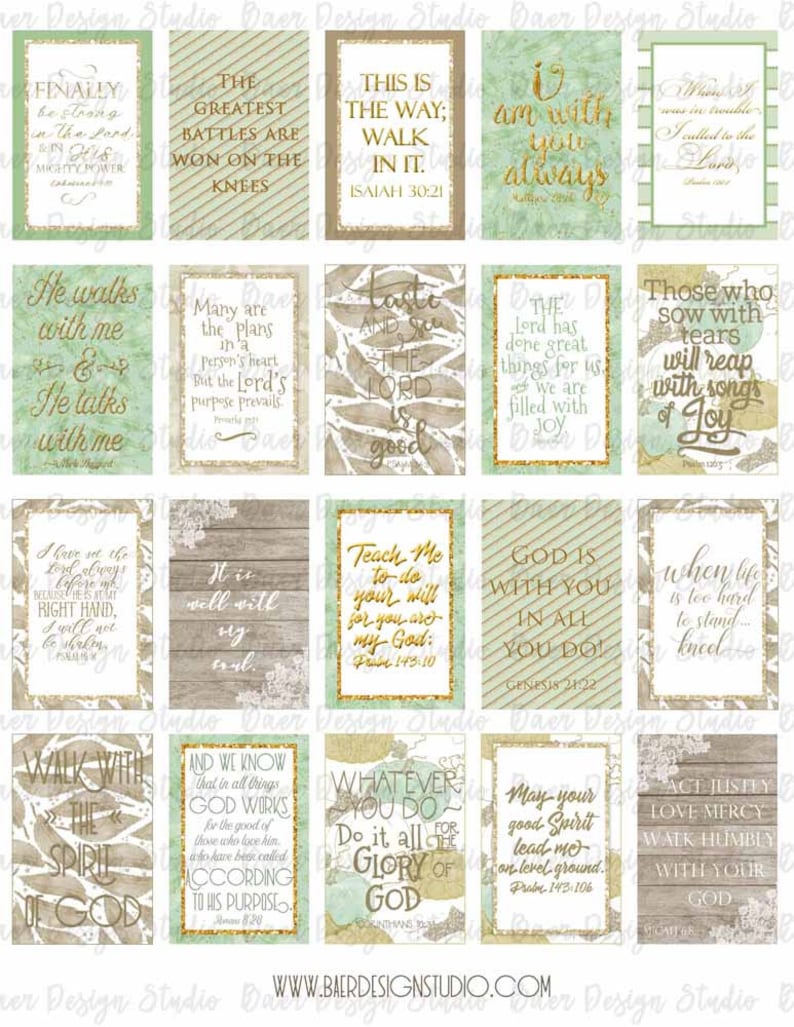 Baer Design Studio Baer Design Studio Baer Design Studio
FINALLY
be strong
in the Lord
& IN His
MIGHTY POWER
THE
GREATEST
BATTLES ARE
WON ON THE
KNEES
THIS IS
THE WAY;
WALK
IN IT.
ISAIAH 30:21
i
am with
you
always
When I
was in trouble,
I called to the
Lord,
He walks
with me
&
He talks
with me
Many are
the plans
in a
person's heart
But the Lord's
purpose prevails.
Proverbs 19:21
taste
AND see
THE
LORD
is
good
THE
Lord has
done great
things for us,
and we are
filled with
JOY
Those who
sow with
tears
will reap
with songs
of Joy
Psalm 126:5
I have set the
Lord always
before me.
BECAUSE HE IS AT MY
RIGHT HAND,
I will not
be shaken.
PSALM 16:8
It is
well with
my
soul.
Teach Me
to do
your will
for you are
my God;
Psalm 143:10
GOD IS
WITH YOU
IN ALL
YOU DO!
GENESIS 21:22
when life
is too hard
to stand...
kneel
WALK WITH
» THE «
SPIRIT
OF GOD
AND WE KNOW
that in all things
GOD WORKS
for the good of
those who love him,
who have been called
ACCORDING
TO HIS PURPOSE.
Romans 8:28
WHATEVER
YOU DO
Do it all FOR THE
GLORY OF
GOD
CORINTHIANS 10:31
May your
good Spirit
lead me
on level ground.
Psalm 143:106
ACT JUSTLY
LOVE MERCY
WALK HUMBLY
WITH YOUR
GOD
MICAH 6:8
WWW.BAERDESIGNSTUDIO.COM